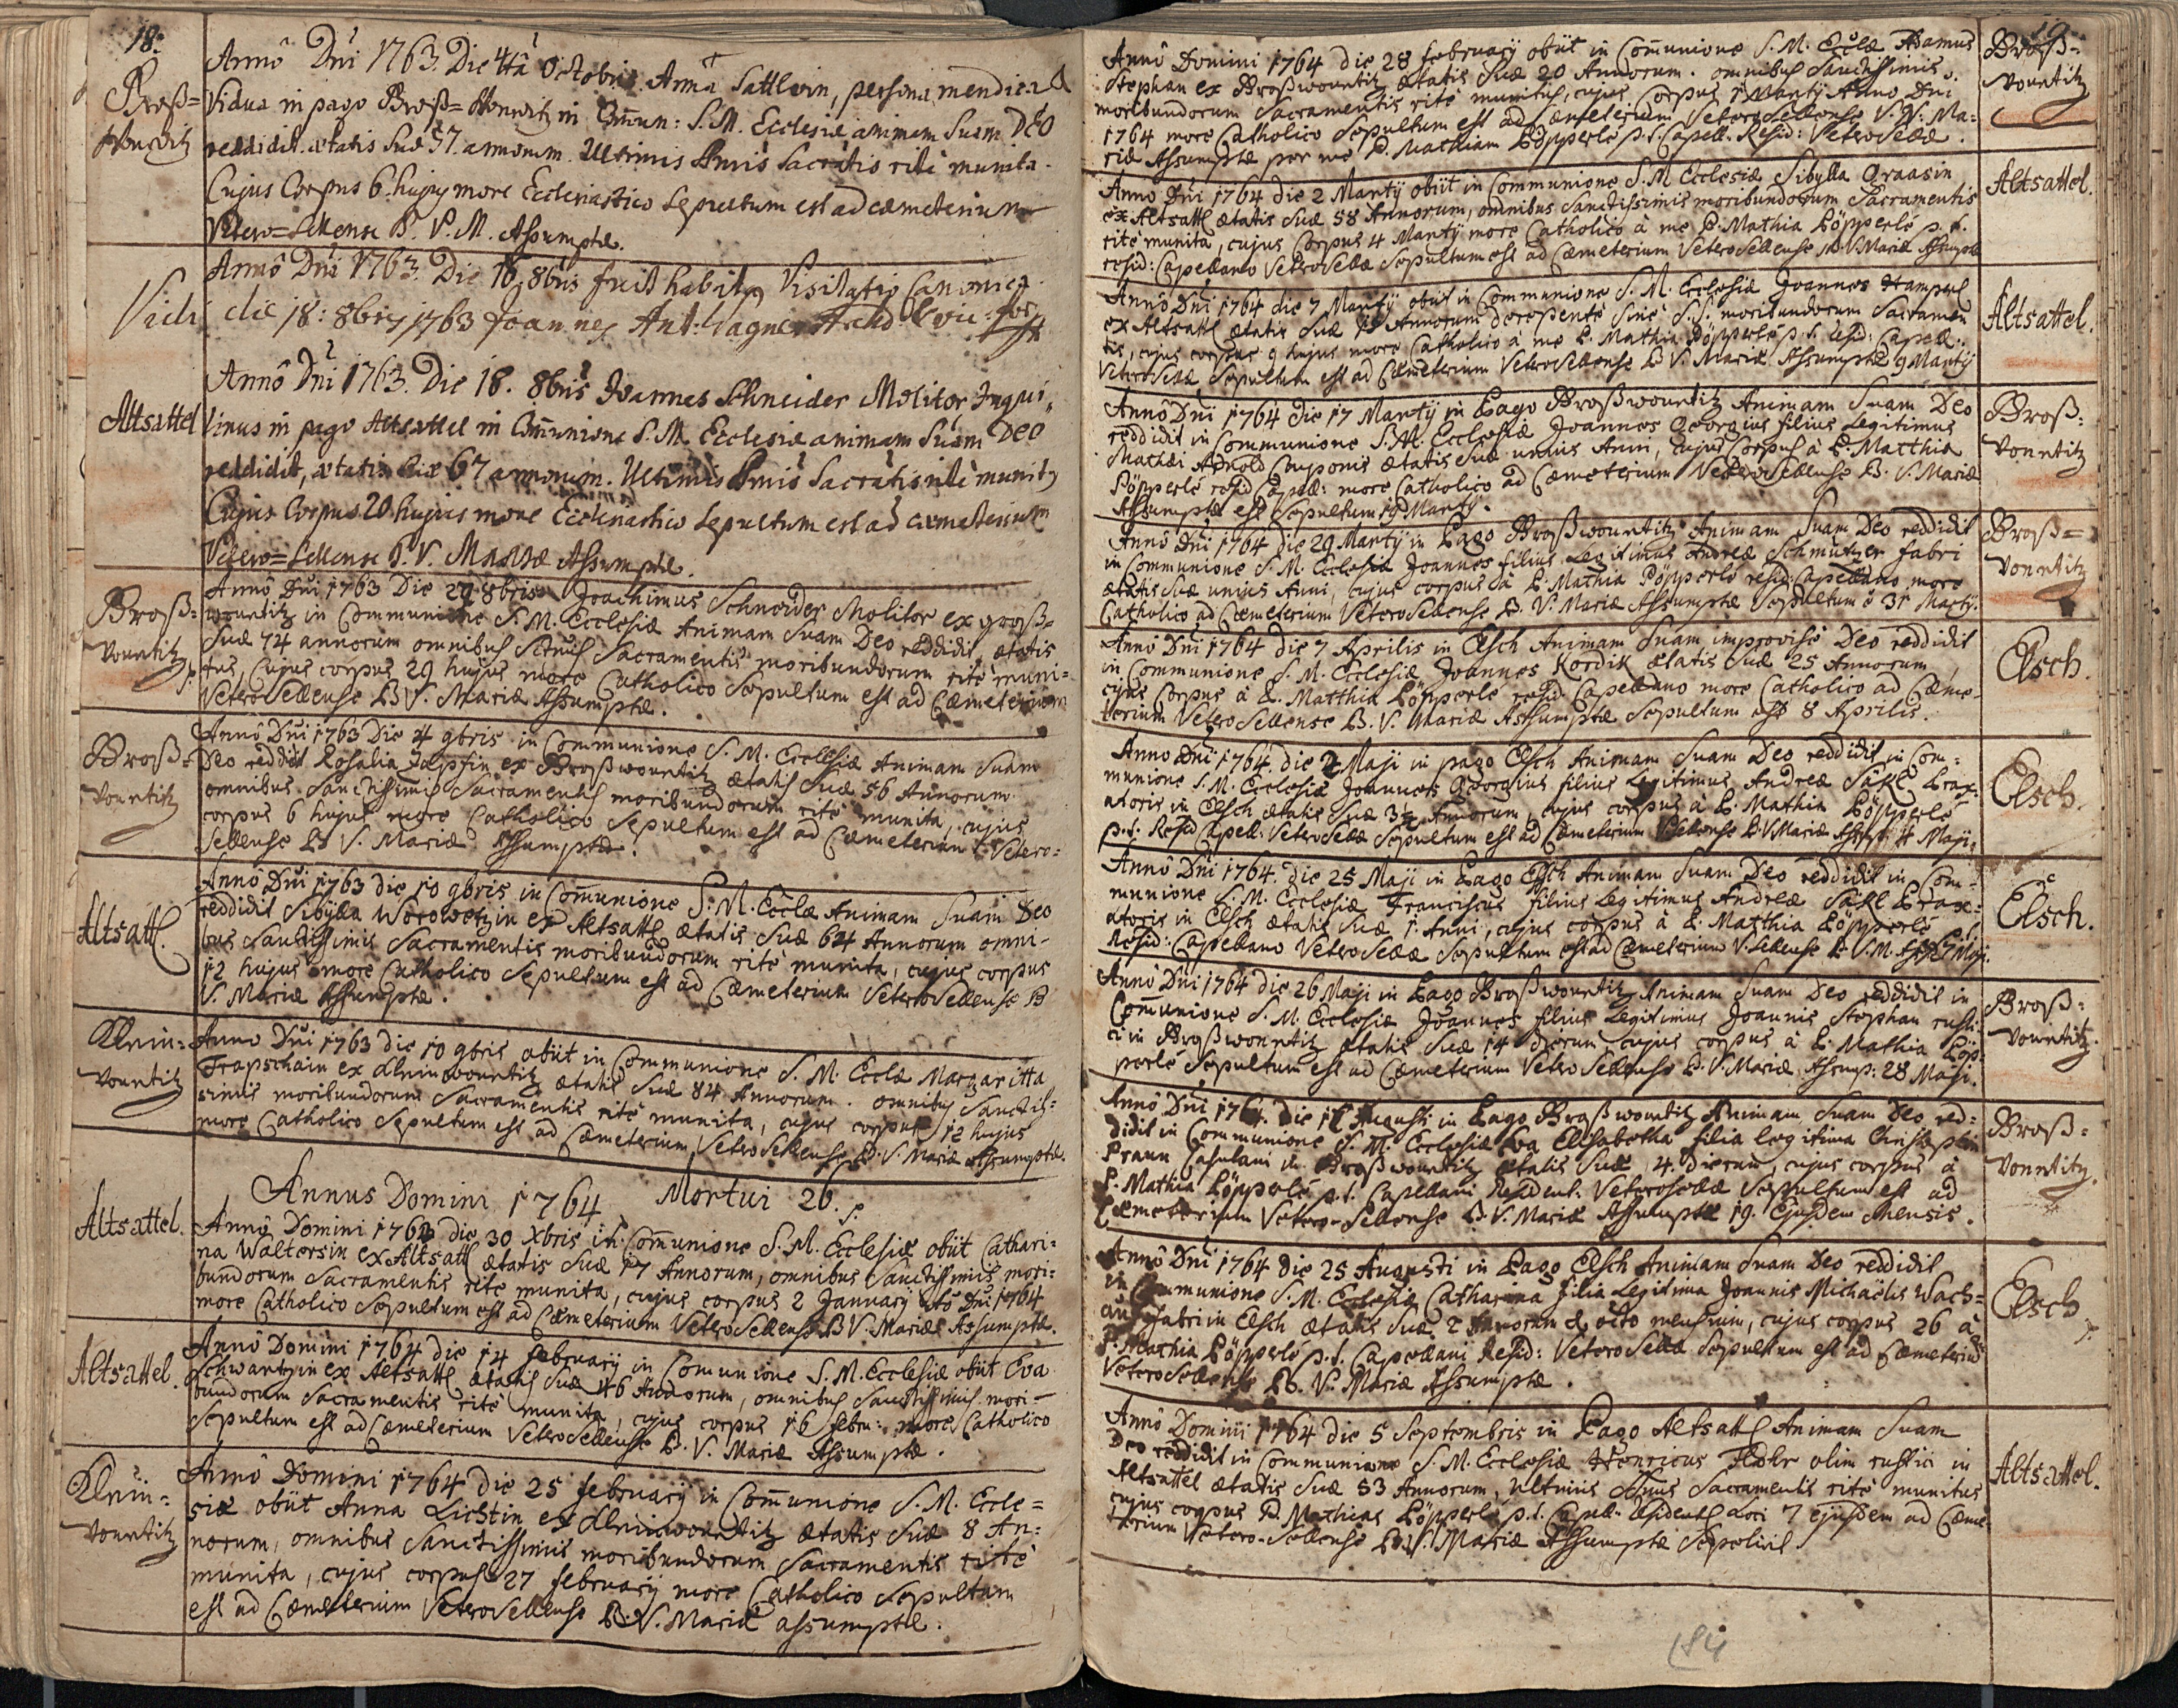 18.
Groß=
Wonetitz
Annô Dni 1763. Die 4tâ Octobris Anna Sattlerin, persona mendica &
Vidua in pago Groß=Wonetitz in Cõmun: S. M. Ecclesiæ animam Suam DEO
reddidit. ætatis Suæ 57. annorum. Ultimis Smis Sacrâtis rite munita.
Cujus Corpus 6. hujus more Ecclesiastico Sepultum est ad cæmeterium
Vetero=Sellense B. V. M. Assumptæ.
Annô Dni 1763. Die 16. 8bris fuit habita Visitatio Canonica.
Vidi die 18: 8bris 1763 Joannes Ant: Wagner
Altsattel
Annô Dni 1763. Die 18. 8bris Joannes Schneider Molitor Inqui,,
linus in pago Altsattel in Cõmunione S. M. Ecclesiæ animam Suam DEO
reddidit, ætatis suæ 67 annorum. Ultimis Smis Sacrâtis rite munitg
Cujus Corpus 20. hujus more Ecclesiastico Sepultum est ad cæmeterium
Vetero=Sellense B. V. MARIÆ Assumptæ.
Groß=
Vonetitz
Annô Dni 1763 Die 29. 8bris Joachimus Schneider Molitor ex groß=
wonetitz in Communione S. M. Ecclesiæ Animam Suam Deo reddidit, ætatis
Suæ 74 annorum omnibus Sctmis Sacramentis moribundorum rite muni=
tus, Cujus corpus 29 hujus more Catholico Sepultum est ad Cæmeterium
VeteroSellense B V. Mariæ Assumptæ.
Groß=
Vonetitz
Annô Dni 1763 Die 4 9bris in Communione S. M. Ecclesiæ Animam Suam
Deo reddidit Rosalia Zapfin ex Großwonetitz ætatis Suæ 56 Annorum
omnibus Sanctissimis Sacramentis moribundorum ritè munita, cujus
corpus 6 hujus more Catholico Sepultum est ad Cæmeterium Vetero=
Sellense B V. Mariæ Assumptæ.
Altsatt.
Annô Dni 1763 die 10 9bris in Cõmunione S. M. Ecclæ Animam Suam Deo
reddidit Sibylla Worowetzin ex Altsatt ætatis Suæ 64 Annorum omni-
bus Sanctissimis Sacramentis moribundorum ritè munita, cujus corpus
12 hujus more Catholico Sepultum est ad Cæmeterium VeteroSellense B
V. Mariæ Assumptæ.
Klein=
Vonetitz
Anno Dni 1763 die 10 9bris obiit in Communione S. M. Ecclæ Margaritta
Trapschain ex Kleinwonetitz ætatis Suæ 84 Annorum. omnibus Sanctis=
simis moribundorum Sacramentis ritè munita, cujus corpus 12 hujus
more Catholico Sepultum est ad Cæmeterium VeteroSellense B. V. Mariæ Assumptæ.
Annus Domini 1764 Mortui 26.
Altsattel.
Annô Domini 1763 die 30 Xbris in Cõmunione S. M. Ecclesiæ obiit Cathari=
na Waltersin ex Altsatt ætatis Suæ 17 Annorum, omnibus Sanctissimis mori=
bundorum Sacramentis rite munita, cujus corpus 2 January Dni 1764
more Catholico Sepultum est ad Cæmeterium VeteroSellense B V. Mariæ Assumptæ.
Altsattel.
Annô Domini 1764 die 14 february in Comunione S. M. Ecclesiæ obiit Eva
Schwartzin ex Altsatt ætatis Suæ 46 Annorum, omnibus Sanctissimis mori-
bundorum Sacramentis ritè munita, cujus corpus 16 febru: more Catholico
Sepultum est ad Cæmeterium VeteroSellense B. V. Mariæ Assumptæ.
Klein=
Vonetitz
Annô Domini 1764 die 25 february in Cõmunione S. M. Eccle=
siæ obiit Anna Lichtin ex Kleinwonetitz ætatis Suæ 8 An=
norum, omnibus Sanctissimis moribundorum Sacramentis ritè
munita, cujus corpus 27 february more Catholico Sepultum
est ad Cæmeterium VeteroSellense B. V. Mariæ assumptæ.
19
Annô Domini 1764 die 28 february obiit in Cõmunione S. M. Ecclæ Adamus
Stephan ex Großwonetitz ætatis Suæ 20 Annorum. omnibus Sanctissimis
moribundorum Sacramentis ritè munitus, cujus Corpus 1 Marty Anno Dni
1764 more Catholico Sepultum est ad Cæmeterium VeteroSellense V. Ma:
riæ Assumptæ per me P. Mathiam Pöpperle p. t. Capell. Resid: VeteroSellæ.
Groß=
Vonetitz
Anno Dni 1764 die 2 Marty obiit in Communione S. M Ecclesiæ Sibylla Graasin
ex Altsatt ætatis Suæ 58 Annorum, omnibus Sanctissimis moribundorum Sacramentis
ritè munita, cujus Corpus 4 Marty more Catholico à me P. Mathia Pöpperle p. t.
resid: Capellano VeteroSellæ Sepultum est ad Cæmeterium VeteroSellense B. V. Mariæ Assumptæ
Altsattel.
Annô Dni 1764 die 7 Marty obiit in Communione S. M. Ecclesiæ Joannes Hampel
ex Altsatt ætatis Suæ Annorum derepente Sine S.S. moribundorum Sacramen
tis, cujus corpus 9 hujus more Catholico à me P. Mathia Pöpperle p. t. resid: Capell:
VeteroSellæ Sepultum est ad Cæmeterium VeteroSellense B V. Mariæ Assumptæ 9 Marty
Altsattel.
Annô Dni 1764 die 17 Marty in Pago Großwonetitz Animam Suam Deo
reddidit in Communione S. M. Ecclesiæ Joannes Georgius filius Legitimus
Mathæi Arnold Cauponis ætatis Suæ unius Anni, cujus Corpus à P. Matthia
Pöpperle resid Capell: more Catholico ad Cæmeterium VeteroSellense B. V. Mariæ
Assumptæ est Sepultum 19 Marty.
Groß=
Vonetitz
Annô Dni 1764 die 29 Marty in Pago Großwonetitz Animam Suam Deo reddidit
in Communione S. M. Ecclesiæ Joannes filius Legitimus Andreæ Schmutzer fabri
ætatis Suæ unius Anni, cujus corpus à P. Mathia Pöpperle resid: Capellano more
Catholico ad Cæmeterium VeteroSellense B. V. Mariæ Assumptæ Sepultum ê 31 Marty.
Groß=
Vonetitz
Annô Dni 1764 die 7 Aprilis in Elsch Animam Suam improvisè Deo reddidit
in Communione S. M. Ecclesiæ Joannes Kordik ætatis Suæ 25 Annorum
cujus Corpus à P. Matthia Pöpperle resid: Capellano more Catholico ad Cæme-
terium VeteroSellense B. V. Mariæ Assumptæ Sepultum est 8 Aprilis.
Elsch.
Anno Dni 1764. die 2 Maji in pago Elsch Animam Suam Deo reddidit in Com=
munione S. M. Ecclesiæ Joannes Georgius filius Legitimus Andreæ Säkl Brax:
atoris in Elsch ætatis Suæ 3½ Annorum, cujus corpus à P. Mathia Pöpperle
p. t. Resid Capell: VeteroSellæ Sepultum est ad Cæmeterium VSellense B. V. Mariæ Assmpt. 4 Maji.
Elsch.
Annô Dni 1764. die 25 Maji in Pago Elsch Animam Suam Deo reddidit in Com=
munione S. M. Ecclesiæ Franciscus filius Legitimus Andreæ Säkl Brax:
atoris in Elsch ætatis Suæ 1. Anni, cujus corpus à P. Matthia Pöpperle
Resid: Capellano VeteroSellæ Sepultum est ad Cæmeterium V.Sellense B. V. M. 27 Maji.
Elsch.
Annô Dni 1764 die 26 Maji in Pago Großwonetitz Animam Suam Deo reddidit in
Cõmmunione S. M. Ecclesiæ Joannes filius Legitimus Joannis Stephan rusti:
ci in Großwonetitz ætatis Suæ 14 dierum cujus corpus à P. Mathia Pöp-
perle Sepultum est ad Cæmeterium VeteroSellense B. V. Mariæ Assump: 28 Maji.
Groß=
Vonetitz.
Annô Dni 1764. die 17 Augusti in Pago Großwonetitz Animam Suam Deo red=
didit in Communione S. M. Ecclesiæ Eva Elisabetha filia legitima Christophori
Praun Casulani in Großwonetitz ætatis Suæ, 4. dierum, cujus corpus à
P. Mathia Pöpperle p. t. Capellani Resident: VeteroSellæ Sepultum est ad
Cæmeterium Vetero-Sellense B. V. Mariæ Assumptæ 19. Ejusdem Mensis.
Groß=
Vonetitz.
Annô Dni 1764 die 25 Augusti in Pago Elsch Animam Suam Deo reddidit
in Communione S. M. Ecclesiæ Catharina filia Legitima Joannis Michaëlis Wach=
auf fabri in Elsch ætatis Suæ 2 Annorum & octo mensium, cujus corpus 26 à
P. Mathia Pöpperle p. t. Capellani Resid: VeteroSellæ Sepultum est ad Cæmeterium
VeteroSellense B. V. Mariæ Assumptæ.
Elsch
Annô Domini 1764 die 5 Septembris in Pago Altsatt Animam Suam
Deo reddidit in Communione S. M. Ecclesiæ Henricus olim rustici in
Altsattel ætatis Suæ 53 Annorum, Ultimis Smis Sacramentis ritè munitus
cujus corpus P. Mathias Pöpperle p. t. Capell: Residents loci 7 ejusdem ad Cæme-
terium Vetero-Sellense B. V. Mariæ Assumptæ Sepelivit.
Altsattel.
184